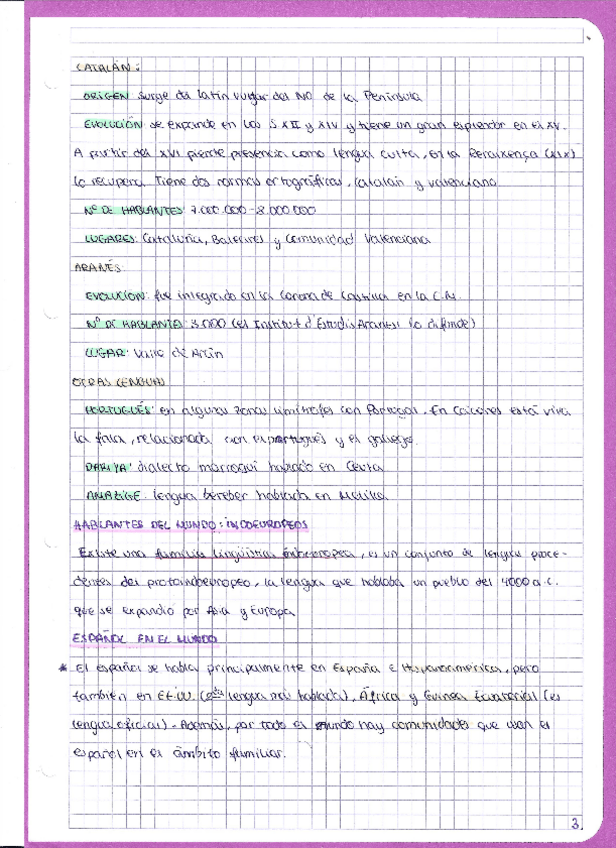 CATALÁN:
ORIGEN surge del latín vulgar del NO de la Península
EVOLUCIÓN se expande en los S XII y XIV y tiene un gran esplendor en el XV.
A partir del XVI pierde presencia como lengua culta, en la Renaixença (XIX)
lo recupera. Tiene dos normas ortográficas, catalán y valenciano
Nº DE HABLANTES: 7.000.000-8.000.000
LUGARES: Cataluña, Baleares y Comunidad Valenciana
ARANÉS
EVOLUCIÓN: fue integrado en la Corona de Castilla en la
Nº DE HABLANTES: 3.000 (el Institut d'Estudis Aranesi lo defiende)
LUGAR: Valle de Arán
OTRAS LENGUAS
PORTUGUÉS: en algunas zonas limítrofes con Portugal. En Cáceres está viva
la fala, relacionada con el portugués y el gallego.
DARIYA: dialecto marroquí hablado en Ceuta
AMAZIGE: lengua bereber hablada en Melilla
HABLANTES DEL MUNDO: INDOEUROPEOS
Existe una familia lingüística, es un conjunto de lengua proce-
dentes del protoindoeuropeo, la lengua que hablaba un pueblo del 4000 a.C.
que se expandió por Asia y Europa
ESPAÑOL EN EL MUNDO
* El español se habla principalmente en España e Hispanoamérica, pero
también en EE.UU. (2da lengua más hablada), África y Guinea Ecuatorial (es
lengua oficial). Además, por todo el mundo hay comunidades que usan el
español en el ámbito familiar.
3